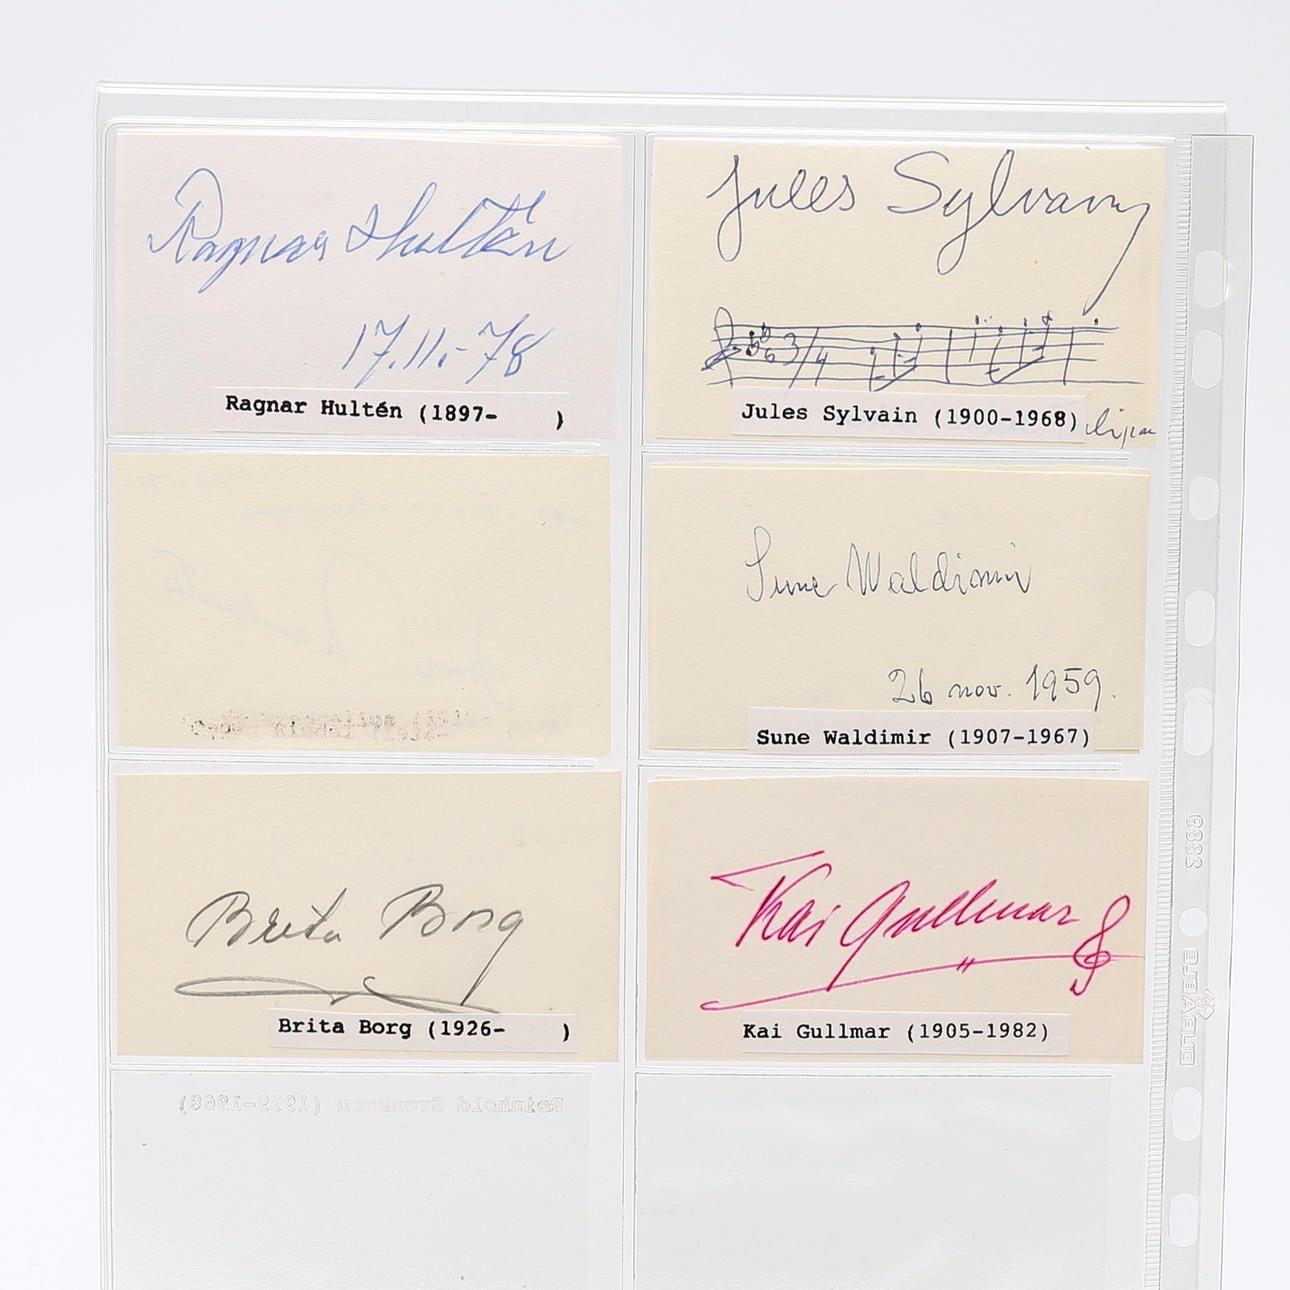 Ragnar Hultén
17.11.-78
Ragnar Hultén (1897-      )
Jules Sylvain
3/4
Jules Sylvain (1900-1968)
Sune Waldimir
26 nov. 1959.
Sune Waldimir (1907-1967)
Brita Borg
Brita Borg (1926-      )
Kai Gullmar
Kai Gullmar (1905-1982)
Reinhold Svensson (1919-1968)
DURABLE